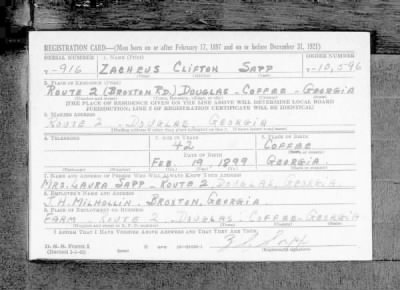 REGISTRATION CARD—(Men born on or after February 17, 1897 and on or before December 31, 1921)
SERIAL NUMBER 1. NAME (Print) ORDER NUMBER
T-916 ZACHEUS CLIFTON SAPP T-10,596
2. PLACE OF RESIDENCE (Print)
ROUTE 2 (BROXTON RD.) DOUGLAS - COFFEE - GEORGIA
[THE PLACE OF RESIDENCE GIVEN ON THE LINE ABOVE WILL DETERMINE LOCAL BOARD
JURISDICTION; LINE 2 OF REGISTRATION CERTIFICATE WILL BE IDENTICAL]
3. MAILING ADDRESS
ROUTE 2 - DOUGLAS, GEORGIA
4. TELEPHONE 5. AGE IN YEARS 6. PLACE OF BIRTH
42 COFFEE
DATE OF BIRTH
FEB. 19, 1899 GEORGIA
7. NAME AND ADDRESS OF PERSON WHO WILL ALWAYS KNOW YOUR ADDRESS
MRS. LAURA SAPP - ROUTE 2, DOUGLAS, GEORGIA
8. EMPLOYER'S NAME AND ADDRESS
J. H. MILHOLLIN - BROXTON, GEORGIA
9. PLACE OF EMPLOYMENT OR BUSINESS
FARM - ROUTE 2 - DOUGLAS - COFFEE - GEORGIA
I AFFIRM THAT I HAVE VERIFIED ABOVE ANSWERS AND THAT THEY ARE TRUE.
D. S. S. Form 1